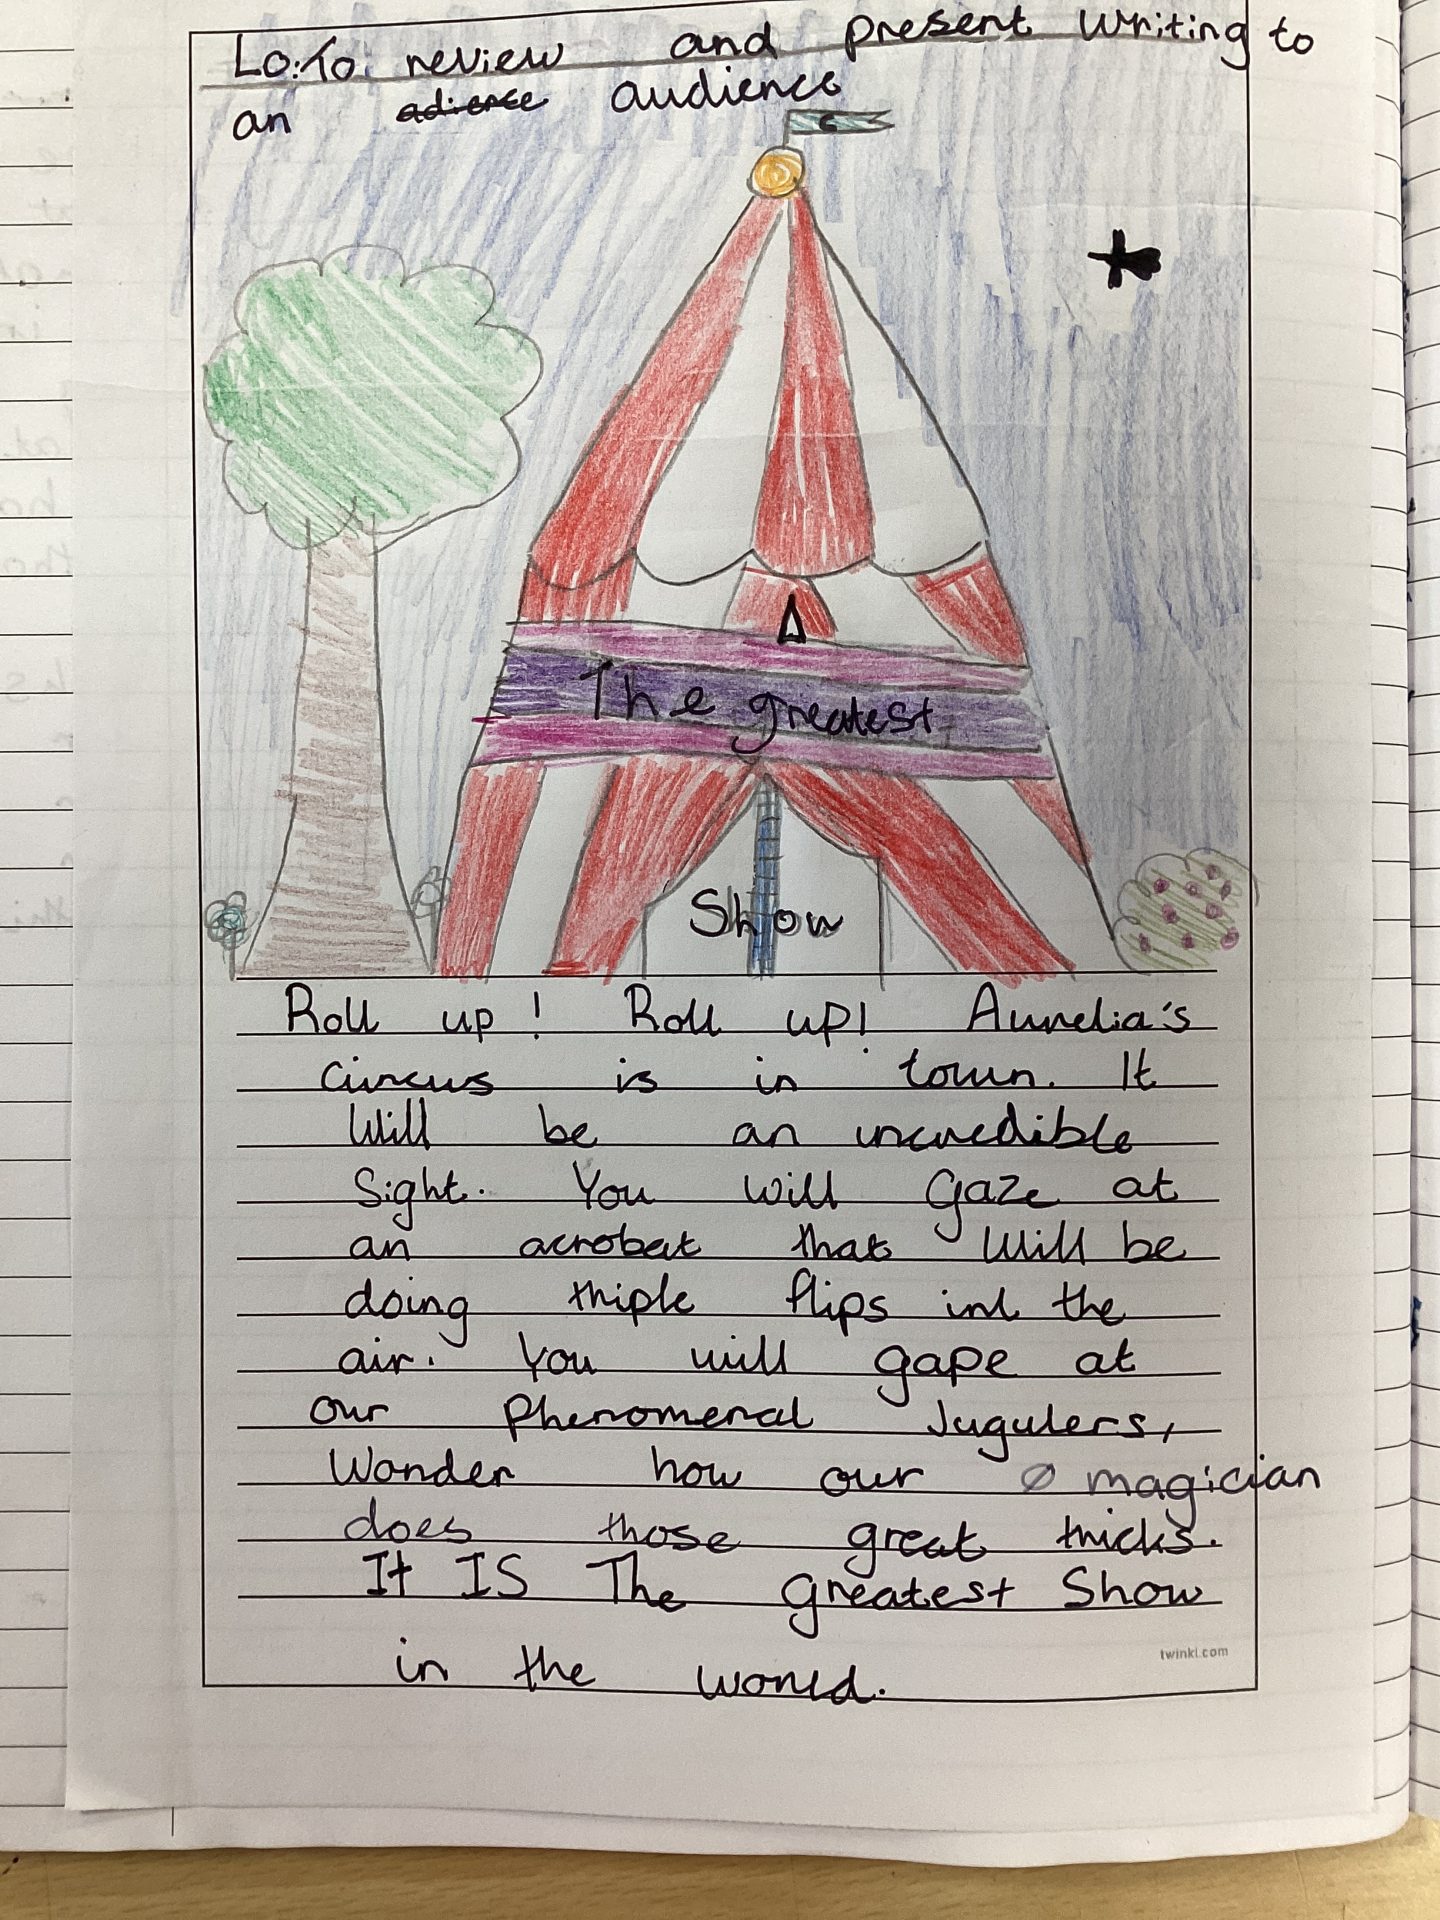 Lo: To review and present writing to
an adience audience
The greatest
Show
Roll up! Roll up! Aurelia's
circus is in town. It
Will be an incredible
Sight. You will gaze at
an acrobat that will be
doing triple flips in the
air. You will gape at
our Phenomenal Jugulers,
Wonder how our magician
does those great tricks.
It IS The greatest Show
in the world.
twinkl.com